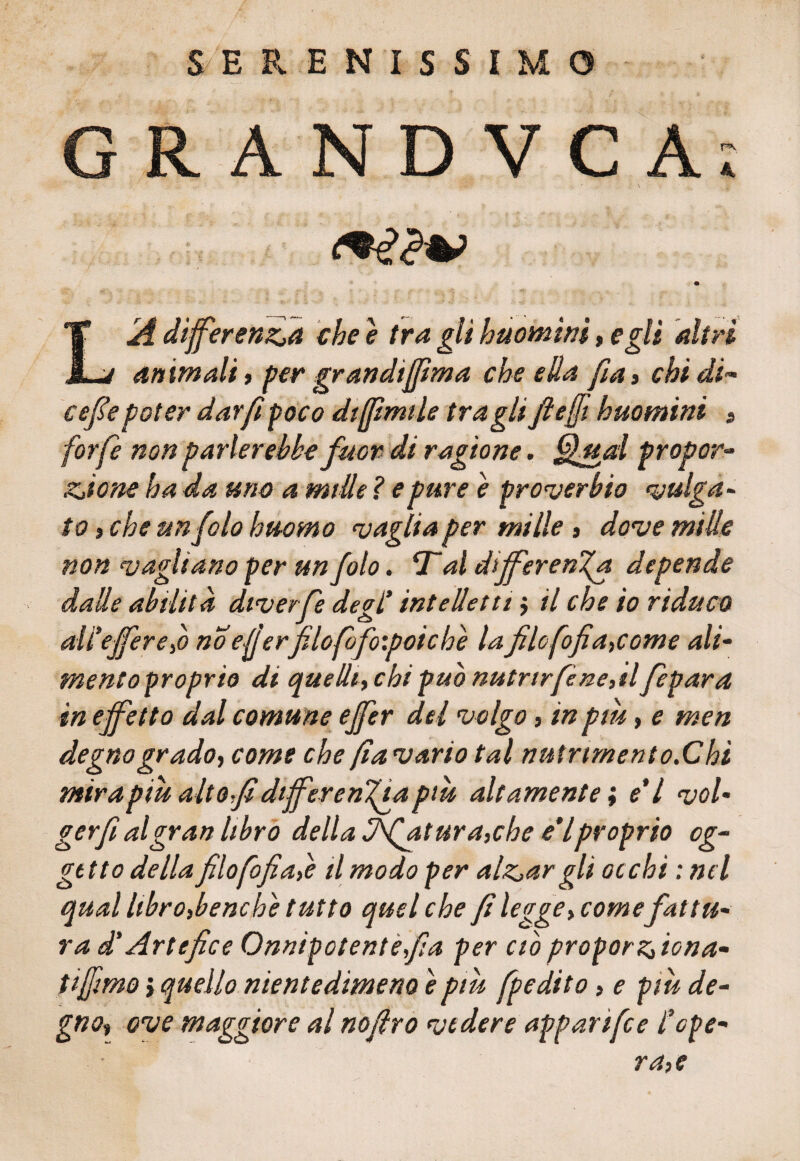 SERENISSIMO
GRANDVCA:
LA differenza che è tra gli huomini, e gli altri
animali, per grandiſſima che ella ſia, chi di-
ceſſe poter darſi poco diſſimile tra gli ſteſſi huomini,
forſe non parlerebbe fuor di ragione. Qual propor-
zione ha da uno a mille? e pure è proverbio vulga-
to, che un ſolo huomo vaglia per mille, dove mille
non vagliano per un ſolo. Tal differenza depende
dalle abilità diverſe degl' intelletti; il che io riduco
all'eſſere, ò nō eſſer filoſofo: poichè la filoſofia, come ali-
mento proprio di quelli, chi può nutrirſene, il ſepara
in effetto dal comune eſſer del volgo, in più, e men
degno grado, come che ſia vario tal nutrimento. Chi
mira più alto, ſi differenzia più altamente; e'l vol-
gerſi al gran libro della Natura, che è'l proprio og-
getto della filoſofia, è il modo per alzar gli occhi: nel
qual libro, benchè tutto quel che ſi legge, come fattu-
ra d'Artefice Onnipotente, ſia per ciò proporziona-
tiſſimo; quello nientedimeno è più ſpedito, e più de-
gno, ove maggiore al noſtro vedere appariſce l'ope-
ra, e